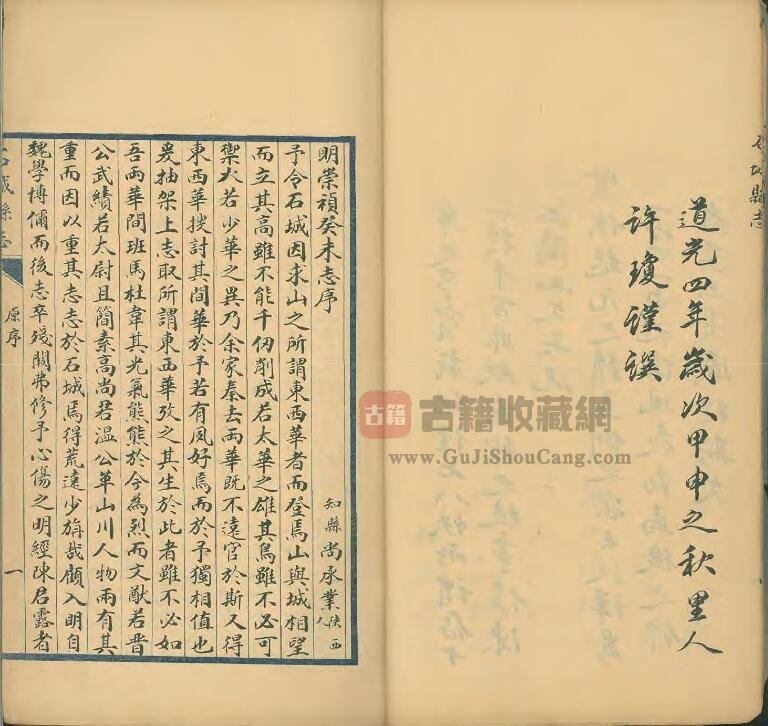 道光四年歲次甲申之秋里人
许瓊谨譔
石城縣志
明崇禎癸未志序
知縣尚承業陕西人
予令石城因求山之所謂東西華者而登焉山與城相望
而立其高雖不能千仞削成若太華之雄其鳥雖不必可
禦火若少華之異乃余家秦去兩華既不遠官於斯又得
東西華搜討其間華於予若有夙好焉而於予獨相值也
爰抽架上志取所謂東西華攷之其生於此者雖不必如
吾兩華間班馬杜韋其光氣熊熊於今為烈而文猷若晋
公武績若太尉且簡素高尚若温公革山川人物兩有其
重而因以重其志志於石城焉得荒遠少旃哉顧入明自
魏學博偁而後志卒殘闕弗修予心傷之明經陳君露者
石城縣志
原序
一
古籍
古籍收藏網
www.GuJiShouCang.com